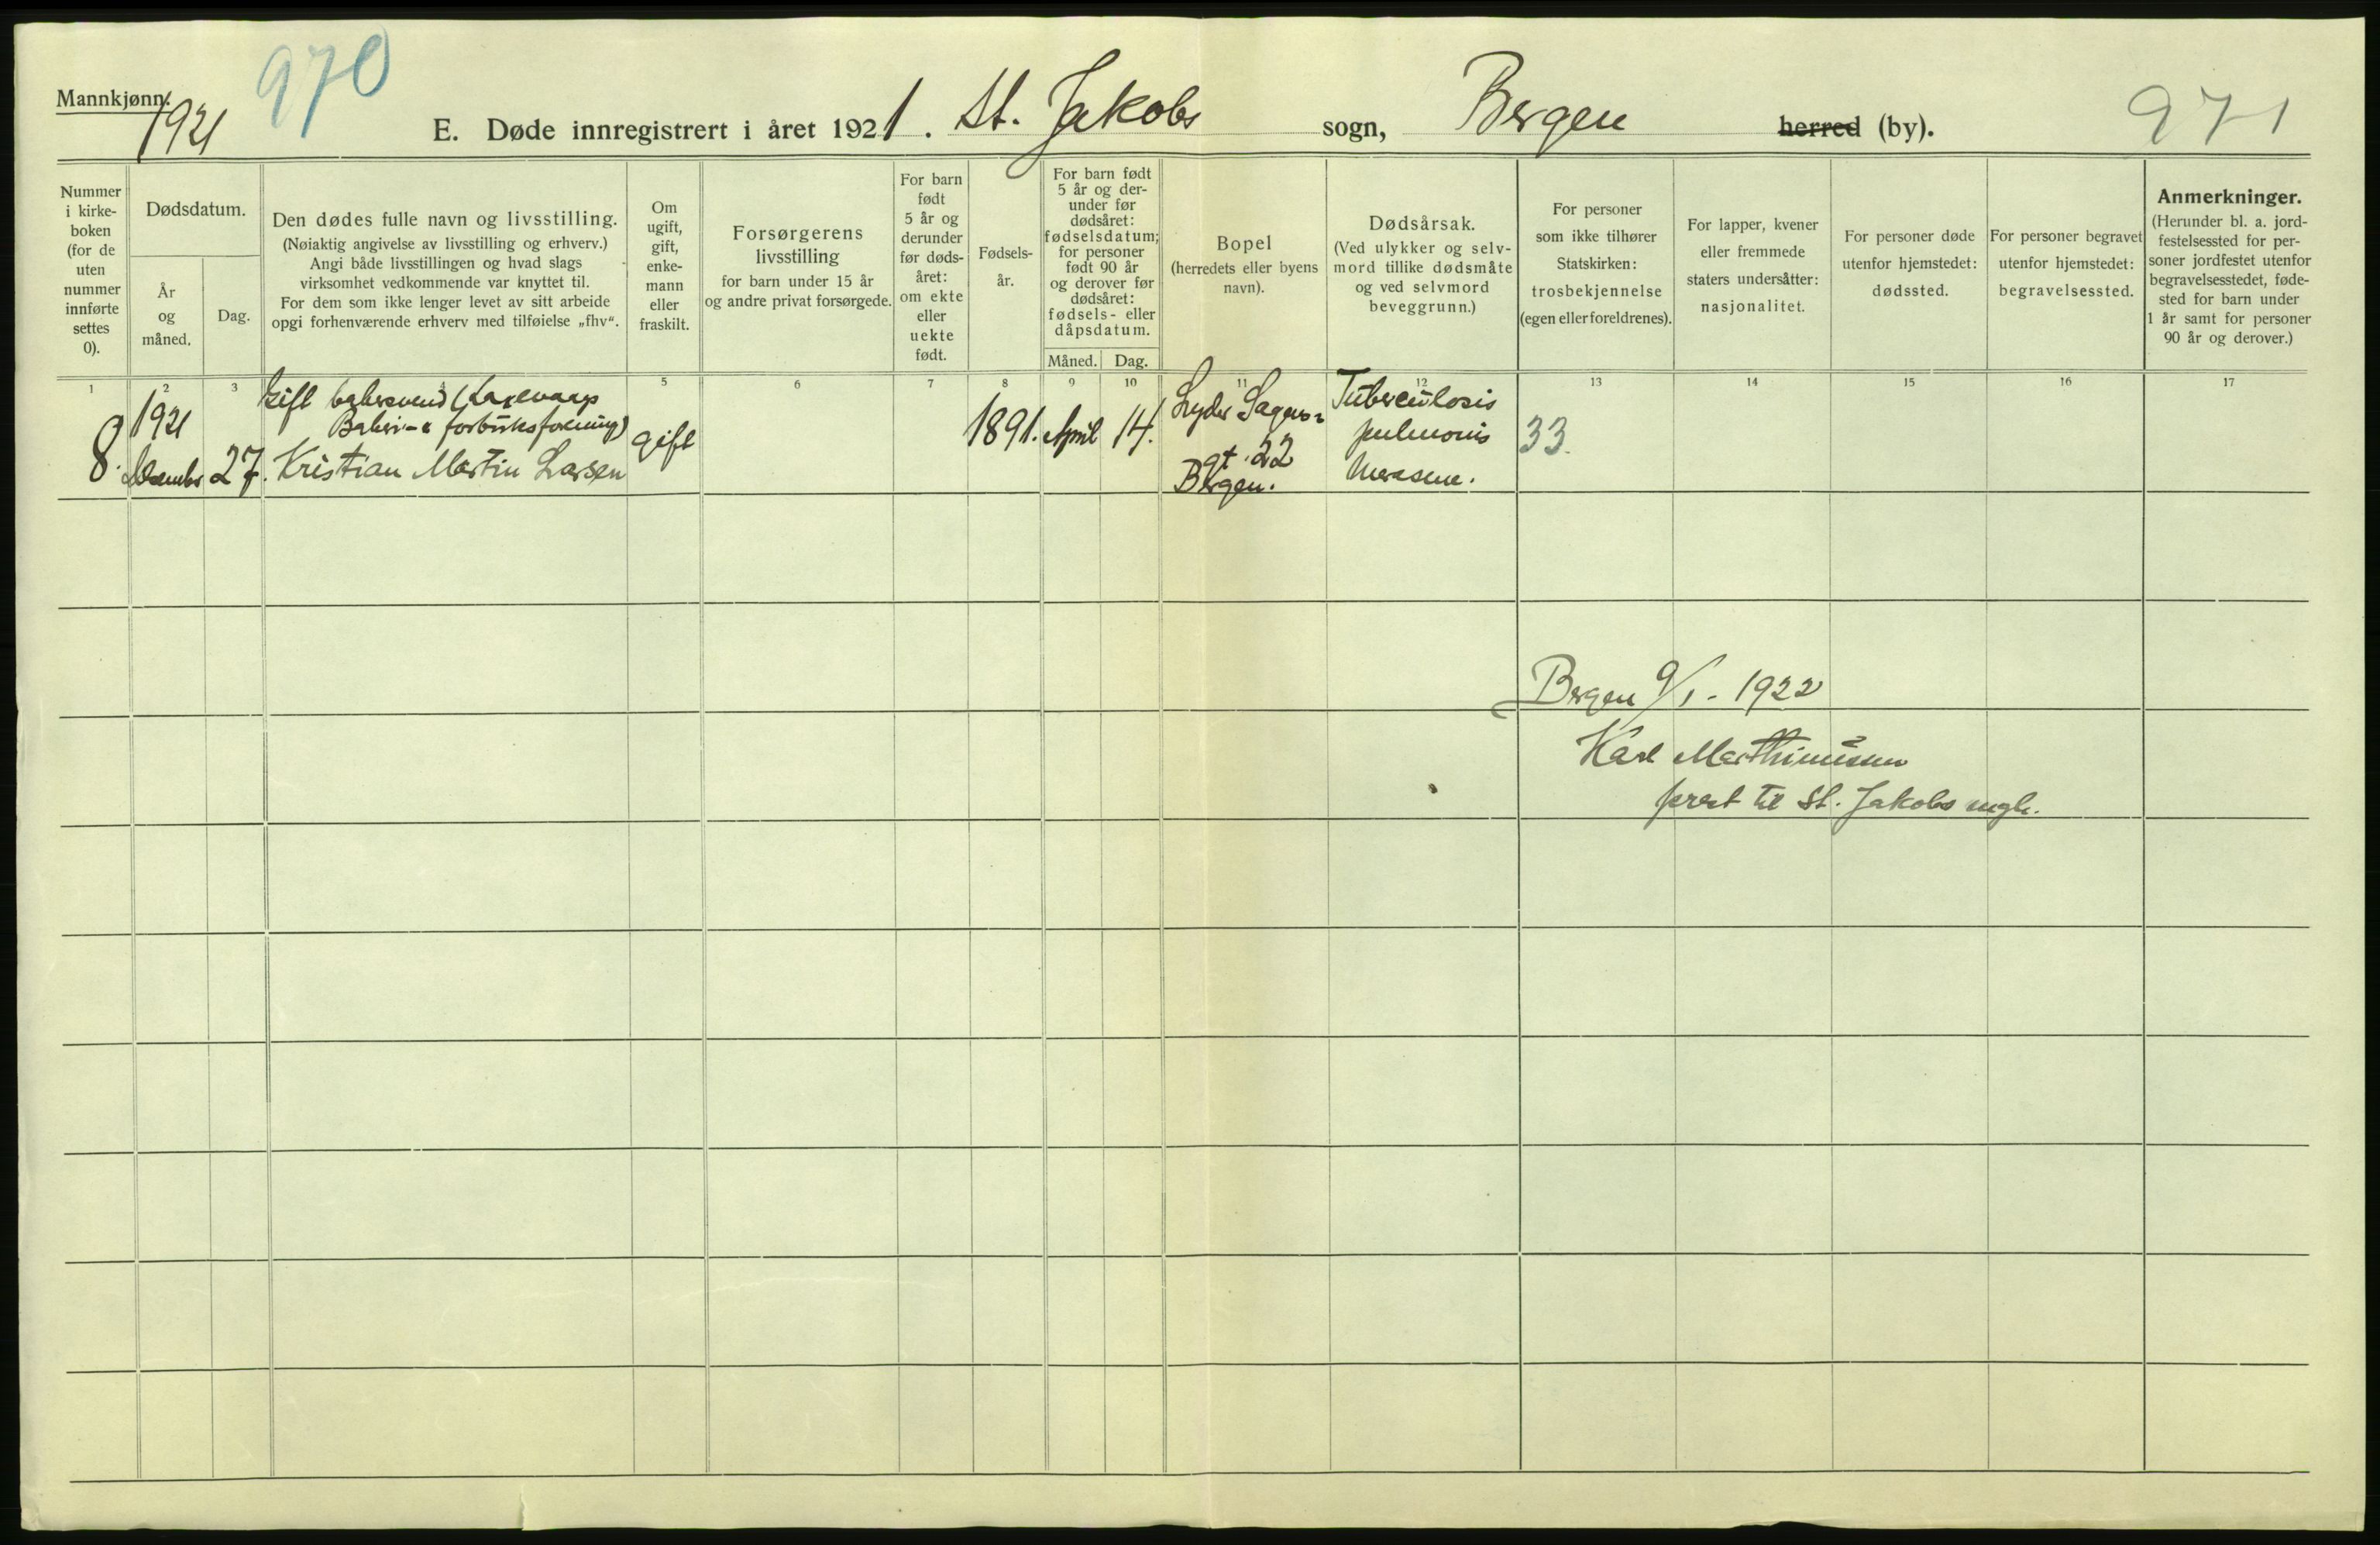 970
Mannkjønn.
1921
E. Døde innregistrert i året 1921. St. Jakobs sogn, Bergen herred (by).
971
Nummer
i kirke-
boken
(for de
uten
nummer
innførte
settes
0).
Dødsdatum.
År
og
måned.
Dag.
Den dødes fulle navn og livsstilling.
(Nøiaktig angivelse av livsstilling og erhverv.)
Angi både livsstillingen og hvad slags
virksomhet vedkommende var knyttet til.
For dem som ikke lenger levet av sitt arbeide
opgi forhenværende erhverv med tilføielse „fhv“.
Om
ugift,
gift,
enke-
mann
eller
fraskilt.
Forsørgerens
livsstilling
for barn under 15 år
og andre privat forsørgede.
For barn
født
5 år og
derunder
før døds-
året:
om ekte
eller
uekte
født.
Fødsels-
år.
For barn født
5 år og der-
under før
dødsåret:
fødselsdatum;
for personer
født 90 år
og derover før
dødsåret:
fødsels- eller
dåpsdatum.
Måned.
Dag.
Bopel
(herredets eller byens
navn).
Dødsårsak.
(Ved ulykker og selv-
mord tillike dødsmåte
og ved selvmord
beveggrunn.)
For personer
som ikke tilhører
Statskirken:
trosbekjennelse
(egen eller foreldrenes).
For lapper, kvener
eller fremmede
staters undersåtter:
nasjonalitet.
For personer døde
utenfor hjemstedet:
dødssted.
For personer begravet
utenfor hjemstedet:
begravelsessted.
Anmerkninger.
(Herunder bl. a. jord-
festelsessted for per-
soner jordfestet utenfor
begravelsesstedet, føde-
sted for barn under
1 år samt for personer
90 år og derover.)
1 2 3 4 5 6 7 8 9 10 11 12 13 14 15 16 17
8.
1921
December
27.
Gift bakersvend (Laxevaags
Bakeri- & forbruksforening)
Kristian Martin Larsen
gift
1891.
April
14.
Lyder Sagens-
gt. 22
Bergen.
Tuberculosis
pulmonis
33.
Bergen 9/1 - 1922
Karl Marthinussen
prest til St. Jakobs mgh.